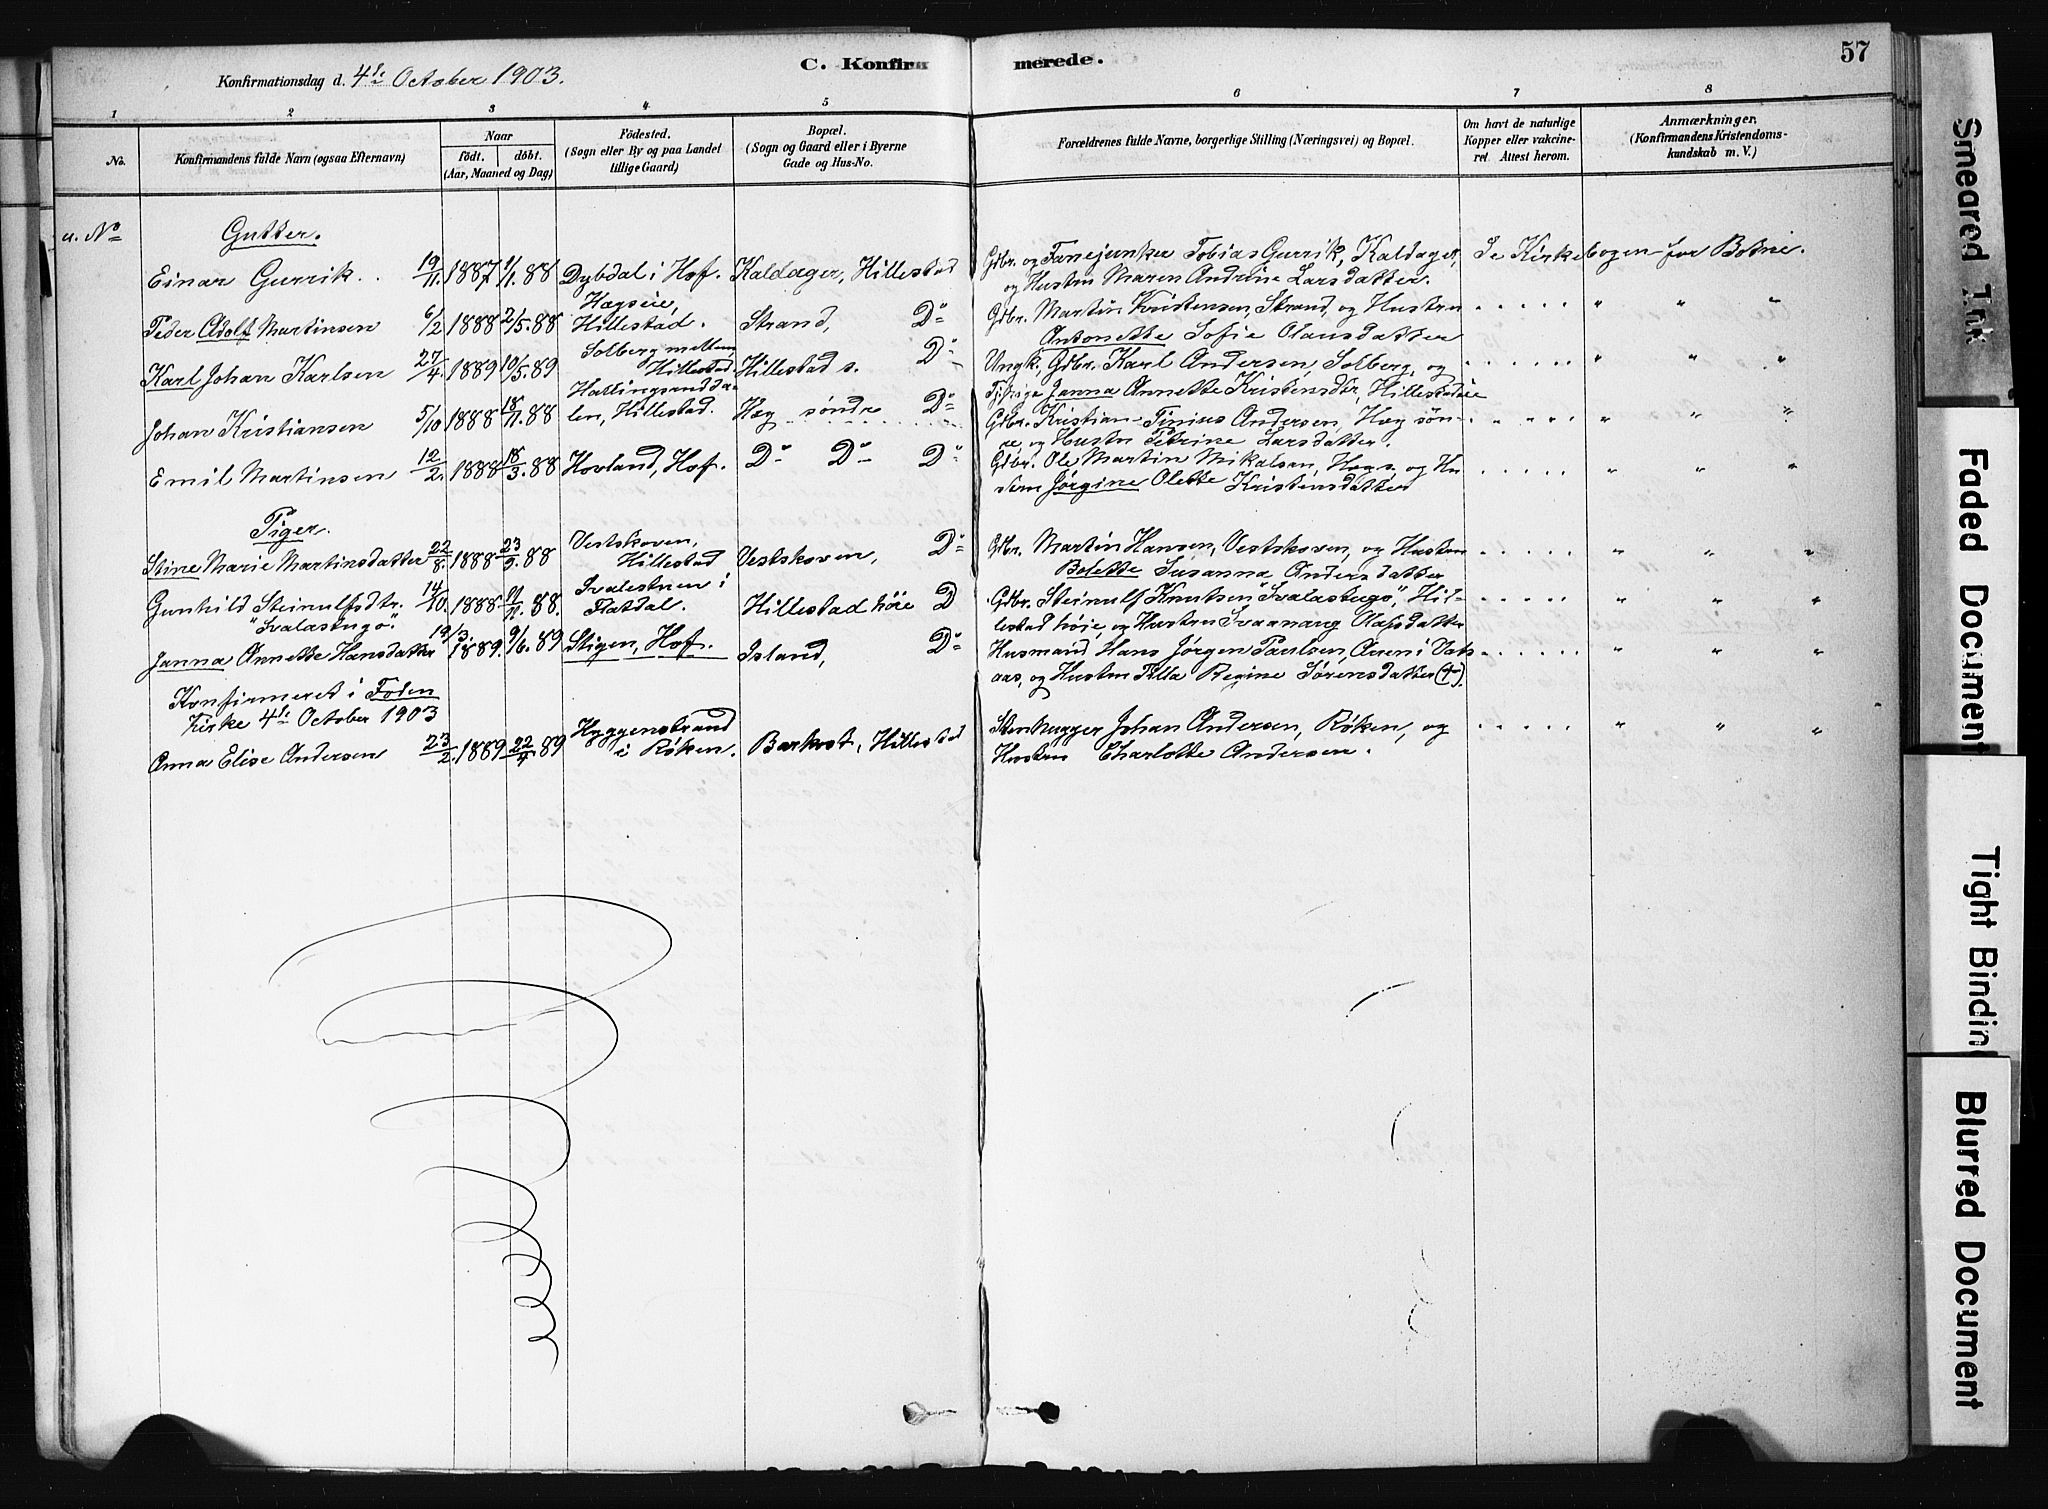 Konfirmationsdag d. 4de October 1903.
C. Konfirmerede.
57
1 2 3 4 5 6 7 8
No.
Konfirmandens fulde Navn (ogsaa Efternavn)
Naar
født. døbt.
(Aar, Maaned og Dag)
Fødested.
(Sogn eller By og paa Landet
tillige Gaard)
Bopæl.
(Sogn og Gaard eller i Byerne
Gade og Hus-No.
Forældrenes fulde Navne, borgerlige Stilling (Næringsvei) og Bopæl.
Om havt de naturlige
Kopper eller vakcine-
ret. Attest herom.
Anmærkninger.
(Konfirmandens Kristendoms-
kundskab m. V.)
u. No
Gutter.
Einar Gurrik. 19/11. 1887 1/1. 88 Dybdal i Hof. Kaldager, Hillestad
Gdbr. og Fanejunker Tobias Gurrik, Kaldager,
og Hustru Maren Andrine Larsdatter.
Se Kirkebogen for Botne.
Peder Adolf Martinsen 6/2 1888 2/5. 88
Hillestad.
Strand, Do
Gdbr. Martin Kristensen, Strand, og Hustru
Antonette Sofie Olausdatter
Karl Johan Karlsen 27/4. 1889 10/5. 89
Solberg mellem,
Hillestad
Hillestad s. Do
Ungk. Gdbr. Karl Andersen, Solberg, og
Janna Annette Kristensdtr, Hillestadeie
Johan Kristiansen 5/10 1888 18/11. 88
Hallingruddalen, Hillestad.
Hæg søndre Do
Gdbr. Kristian Tinius Andersen, Hæg søn-
re, og Hustru Petrine Larsdatter.
Emil Martinsen 12/2. 1888 18/3. 88 Hovland, Hof. Do Do Do
Gdbr. Ole Martin Mikalsen, Hæg s, og Hu
stru Jørgine Olette Kristensdatter
Piger.
Stine Marie Martinsdatter 22/8. 1888 23/9. 88
Vestskoven,
Hillestad
Vestskoven, Do
Gdbr. Martin Hansen, Vestskoven, og Hustru
Bolette Susanna Andersdatter
Gunhild Steinulfsdtr. 14/10. 1888 11/11. 88.
"Svalastugø".
Svalestuen i
Flatdal.
Hillestad høie D
Gdbr. Steinulf Knutsen "Svalastugø", Hil-
lestad høie, og Hustru Svanaug Olafsdatter
Janna Annette Hansdatter 19/3. 1889. 9/6. 89 Stigen, Hof. Island, Do
Husmand Hans Jørgen Paulsen, Aren i Vats
aas, og Hustru Tilla Regine Sørensdatter (†).
Konfirmeret i Foden
Kirke 4de October 1903
Anna Elise Andersen 23/2. 1889 22/4. 89
Hyggenstrand
i Røken.
Barkost, Hillestad
Stenhugger Johan Andersen, Røken, og
Hustru Charlotte Andersen.
Smeared Ink
Faded Document
Tight Bindin
Blurred Document